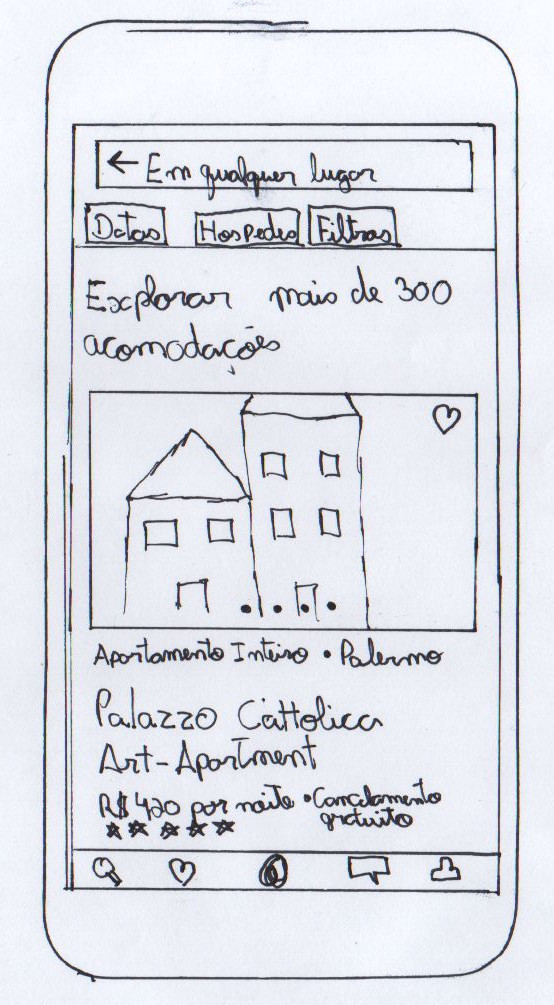 ← Em qualquer lugar
Datas Hospedes Filtros
Explorar mais de 300
acomodações
Apartamento Inteiro • Palermo
Palazzo Cattolica
Art-Apartment
R$ 420 por noite • Cancelamento
gratuito